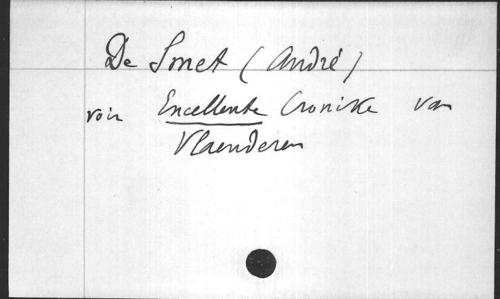 De Smet (André)
voir Excellente Cronike van
Vlaenderen